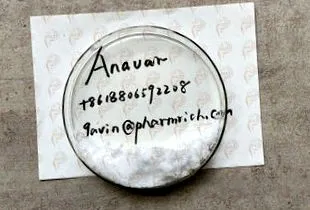 Anavar
+8618806592208
gavin@pharmrich.com